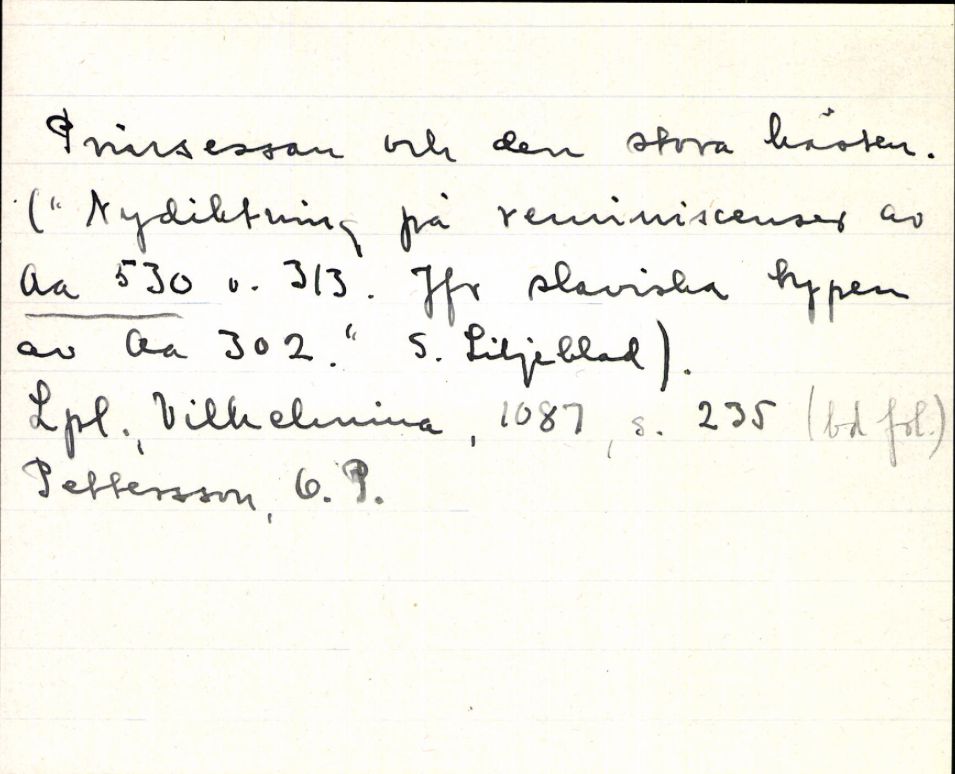 Prinsessan och den stora hästen.
("Nydiktning på reminiscenser av
Aa 530 o. 313. Jfr slaviska typen
av Aa 302." S. Liljeblad).
Lpl., Vilhelmina, 1087, s. 235 (bd fol.)
Pettersson, O.P.